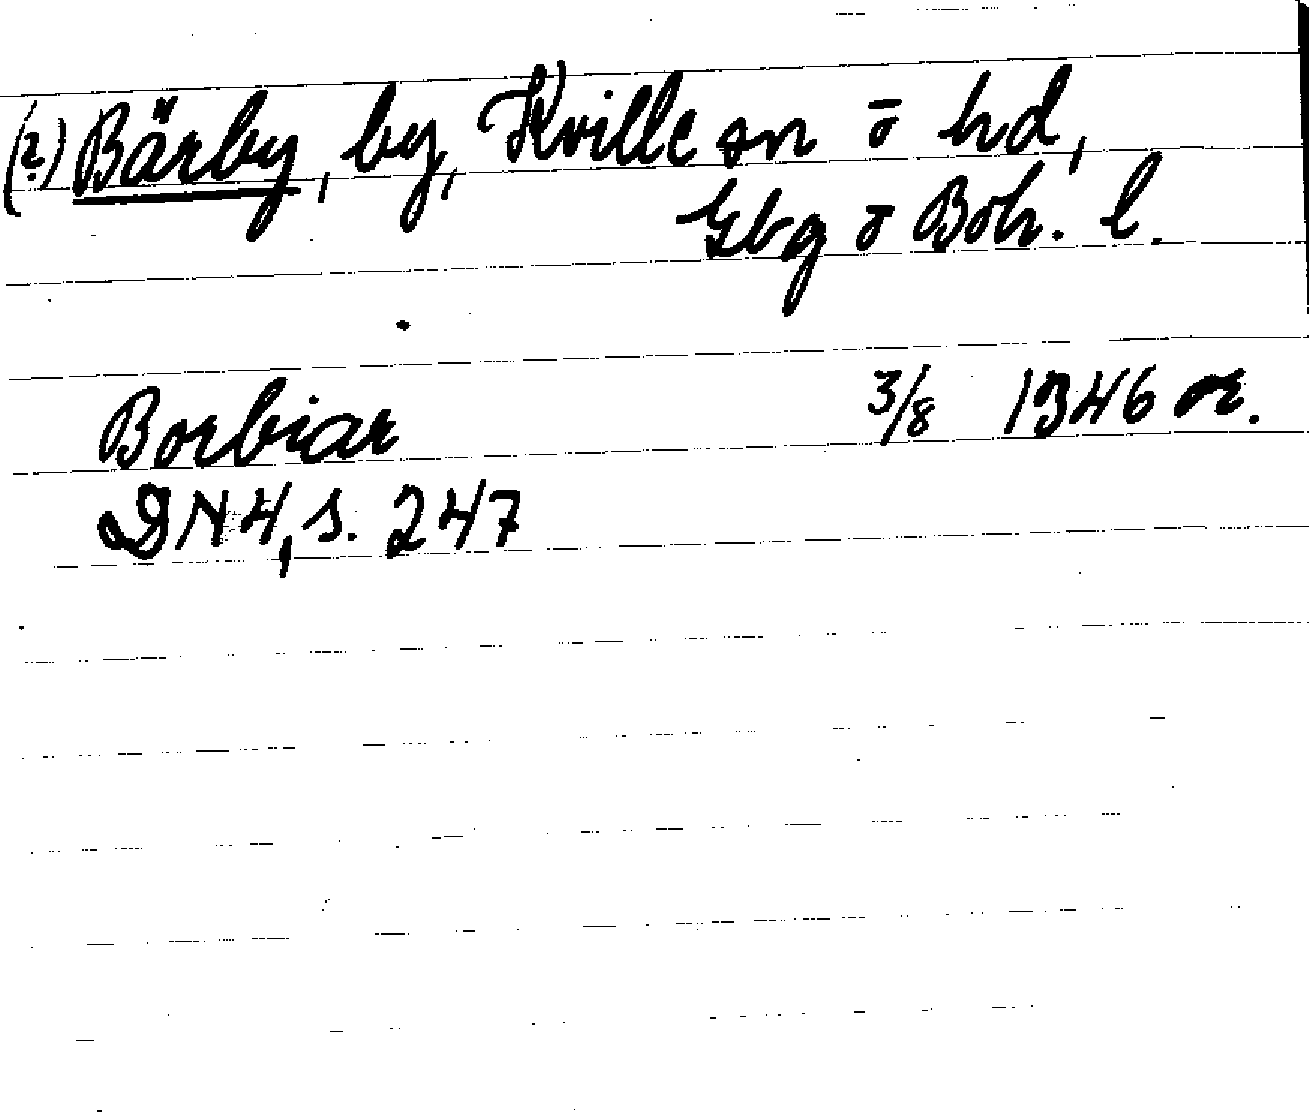 (?) Bärby, by, Kville sn o hd,
Gbg o Boh. l.
Borbiar 3/8 1346 or.
DN 4, s. 247